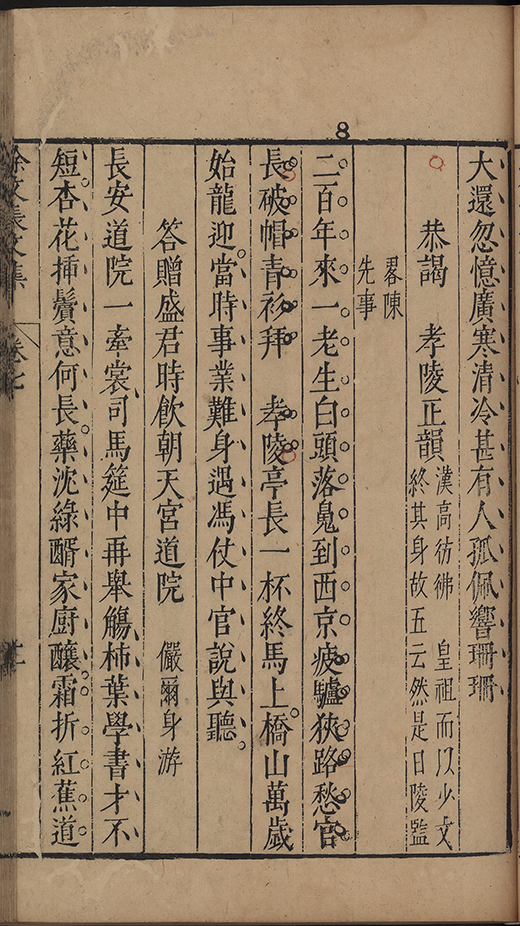 8
大還忽憶廣寒清冷甚有人孤佩響珊珊
恭謁　孝陵正韻
漢高彷彿　皇祖而以少文
終其身故五云然是日陵監
畧陳
先事
二百年來一老生白頭落魄到西京疲驢狹路愁官
長破帽青衫拜　孝陵亭長一杯終馬上橋山萬歲
始龍迎當時事業難身遇馮仗中官說與聽
答贈盛君時飲朝天宮道院　儼爾身游
長安道院一牽裳司馬筵中再舉觴柿葉學書才不
短杏花揷鬢意何長藥沈綠醑家厨釀霜折紅蕉道
徐文長文集　卷七　十一